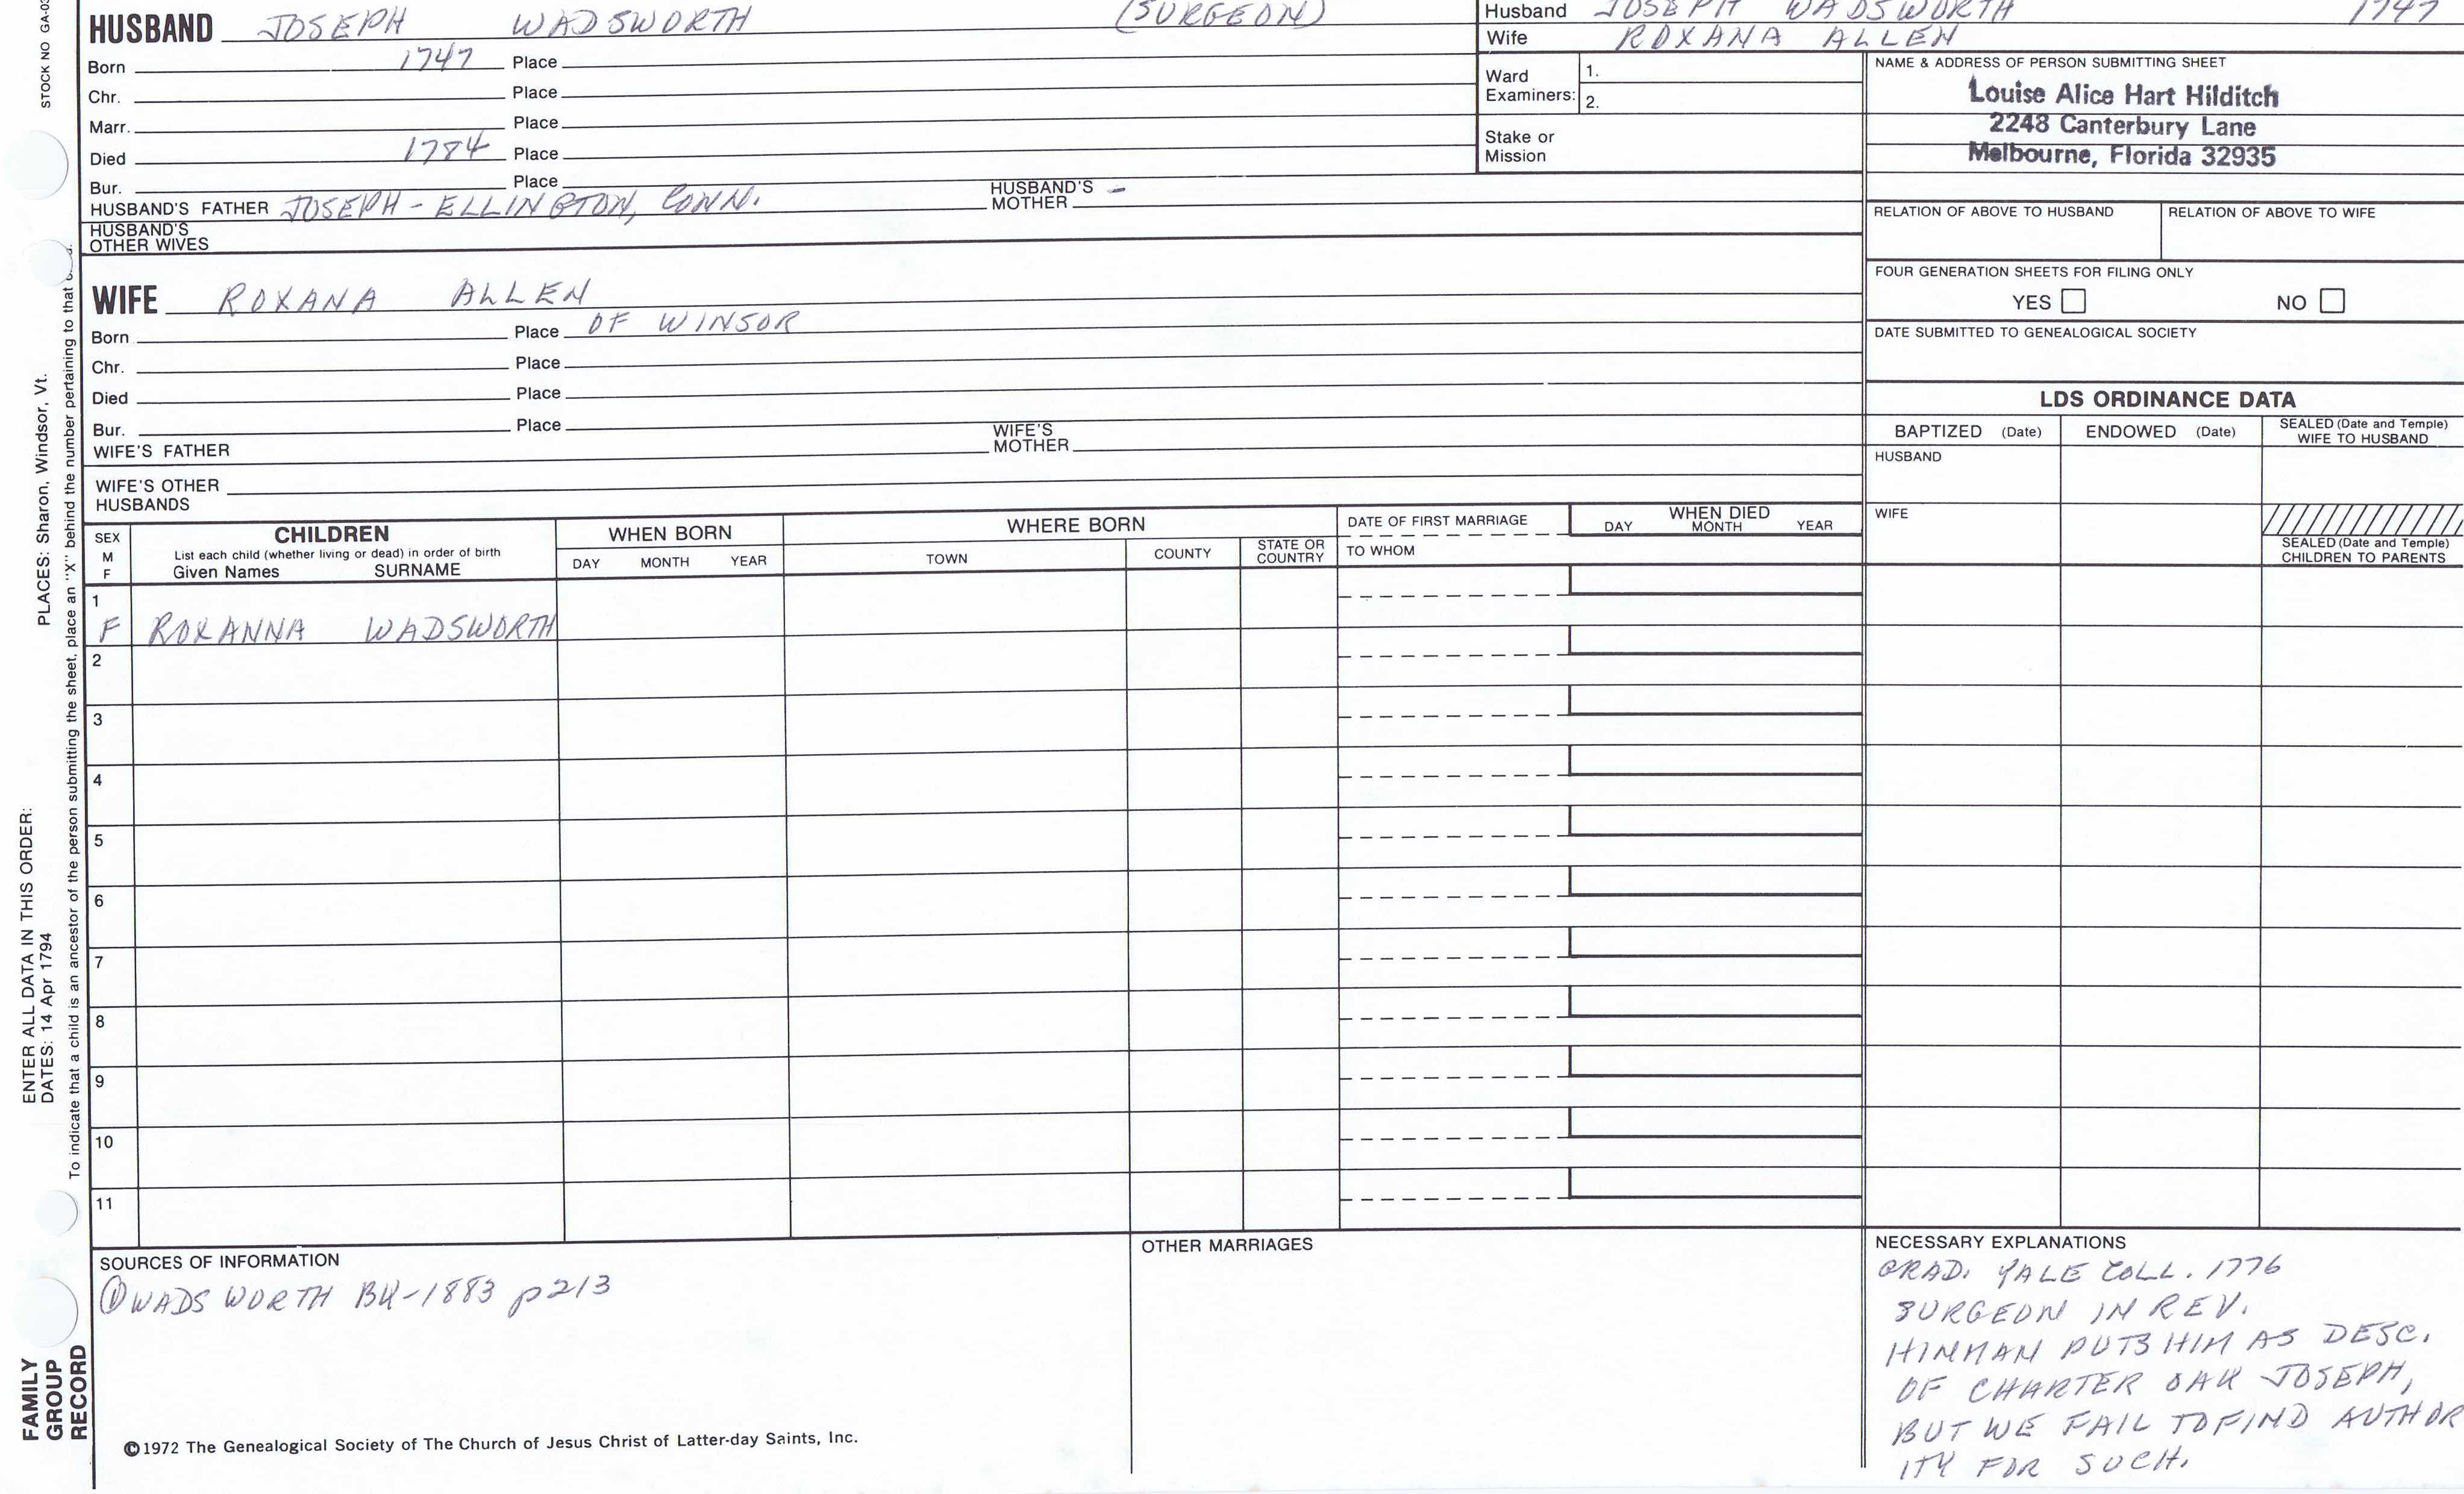 STOCK NO GA-03
HUSBAND JOSEPH WADSWORTH (SURGEON)
Born 1747 Place
Chr. Place
Marr. Place
Died 1784 Place
Bur. Place
HUSBAND'S FATHER JOSEPH - ELLINGTON, CONN. HUSBAND'S MOTHER -
HUSBAND'S OTHER WIVES
Husband JOSEPH WADSWORTH 1747
Wife ROXANA ALLEN
Ward Examiners: 1.
2.
Stake or Mission
NAME & ADDRESS OF PERSON SUBMITTING SHEET
Louise Alice Hart Hilditch
2248 Canterbury Lane
Melbourne, Florida 32935
RELATION OF ABOVE TO HUSBAND RELATION OF ABOVE TO WIFE
FOUR GENERATION SHEETS FOR FILING ONLY
YES NO
DATE SUBMITTED TO GENEALOGICAL SOCIETY
WIFE ROXANA ALLEN
Born Place OF WINSOR
Chr. Place
Died Place
Bur. Place
WIFE'S FATHER WIFE'S MOTHER
WIFE'S OTHER HUSBANDS
LDS ORDINANCE DATA
BAPTIZED (Date) ENDOWED (Date) SEALED (Date and Temple) WIFE TO HUSBAND
HUSBAND
WIFE
SEALED (Date and Temple) CHILDREN TO PARENTS
SEX M F
CHILDREN
List each child (whether living or dead) in order of birth
Given Names SURNAME
WHEN BORN
DAY MONTH YEAR
WHERE BORN
TOWN COUNTY STATE OR COUNTRY
DATE OF FIRST MARRIAGE
TO WHOM
WHEN DIED
DAY MONTH YEAR
1
F ROXANNA WADSWORTH
2
3
4
5
6
7
8
9
10
11
SOURCES OF INFORMATION
① WADSWORTH BK-1883 p213
OTHER MARRIAGES
NECESSARY EXPLANATIONS
GRAD. YALE COLL. 1776
SURGEON IN REV.
HINMAN PUTS HIM AS DESC.
OF CHARTER OAK JOSEPH,
BUT WE FAIL TO FIND AUTHOR
ITY FOR SUCH.
©1972 The Genealogical Society of The Church of Jesus Christ of Latter-day Saints, Inc.
FAMILY
GROUP
RECORD
ENTER ALL DATA IN THIS ORDER:
DATES: 14 Apr 1794 PLACES: Sharon, Windsor, Vt.
To indicate that a child is an ancestor of the person submitting the sheet, place an "X" behind the number pertaining to that